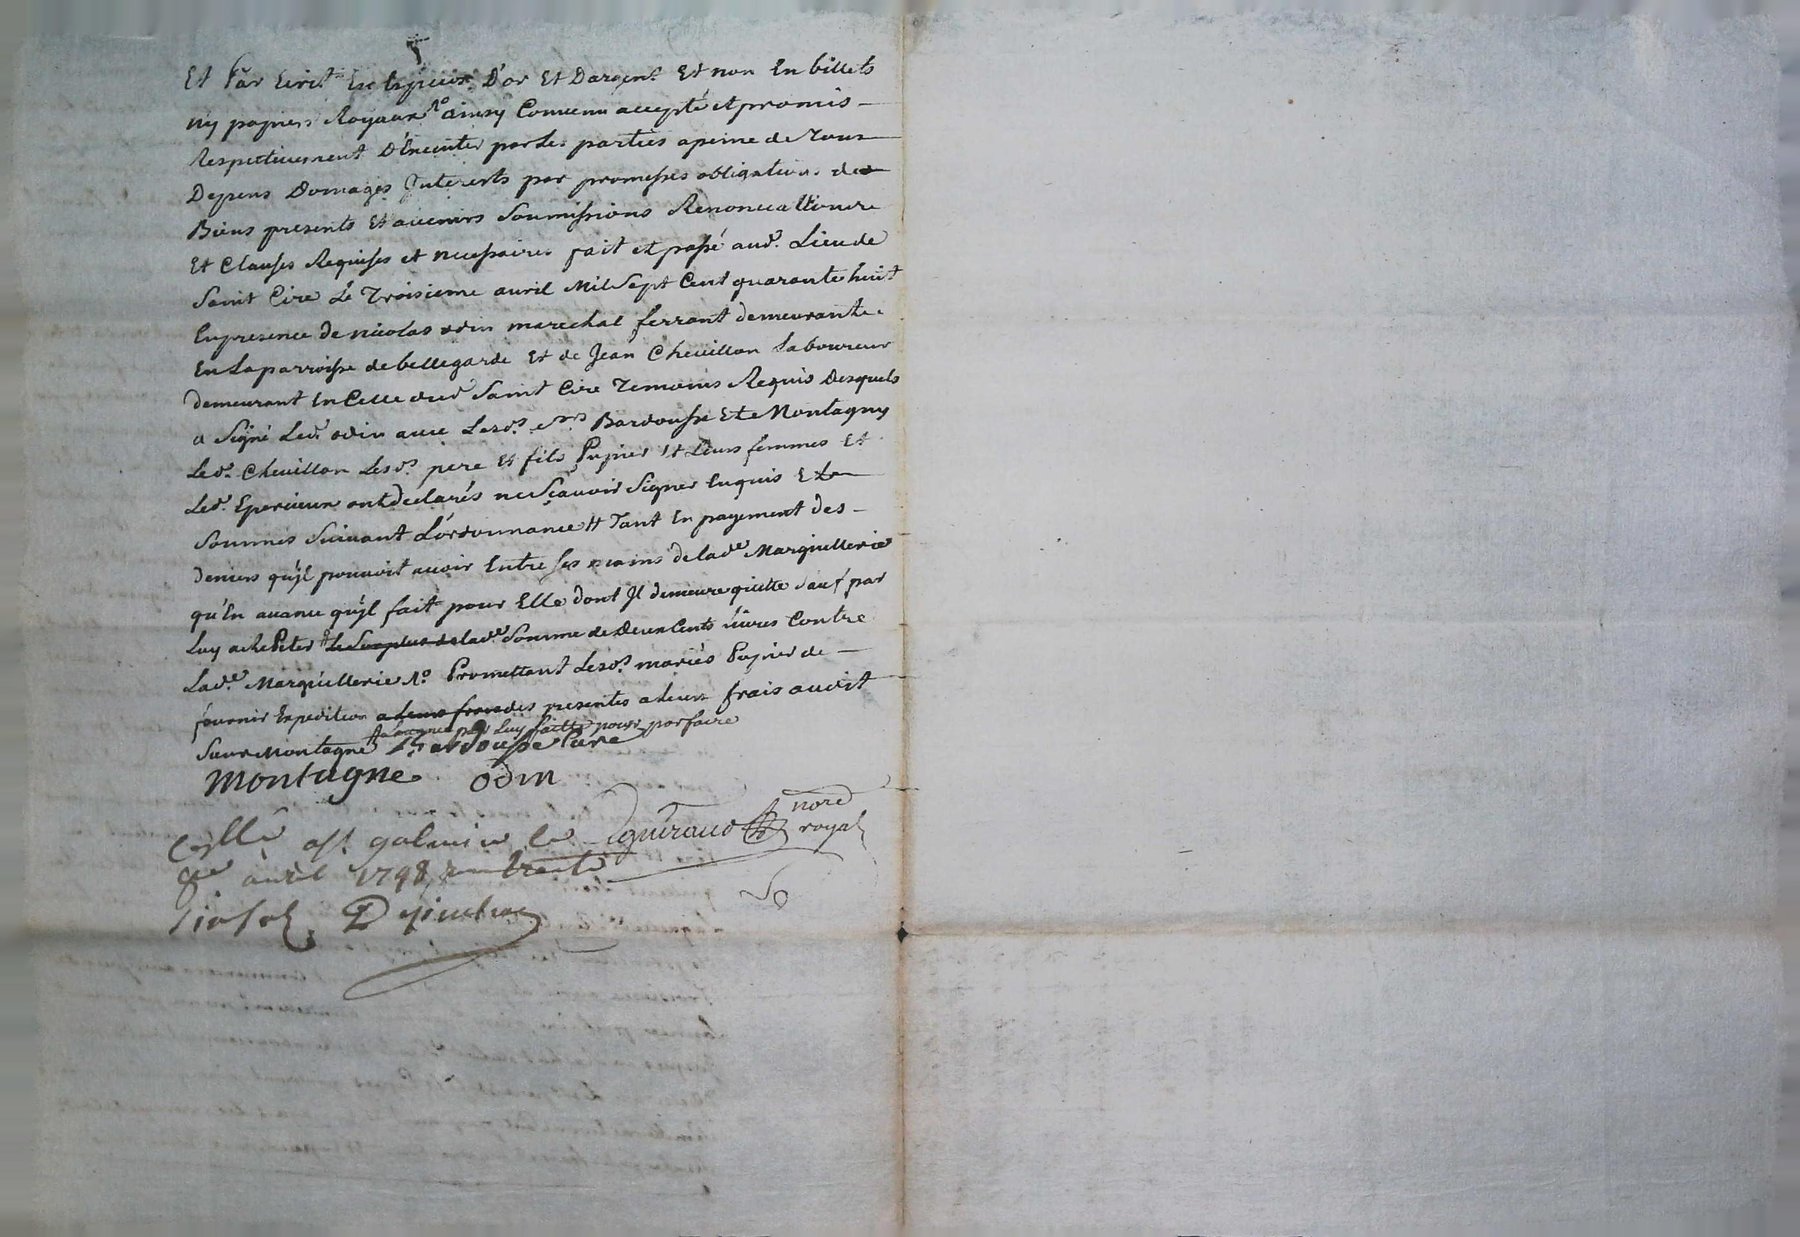 Et par Ecrit En Especes D'or Et Dargent Et non En billets
ny papiers Royaux R.º ainsy Convenu accepté et promis
Respectivement D'Executer par Les parties apeine de Tous
Depens Domages Interests par promesses obligations de
Biens presents Et avenirs Soumissions Renonceations
Et Clauses Requises et necessaires fait et passé aud. Lieu de
Saint Cire Le Troisieme avril Mil Sept Cent quarante huit
En presence de nicolas odin marechal ferrant demeurant
En La parroisse de bellegarde Et de Jean Chevillon Laboureur
demeurant En Celle dud Saint Cire Temoins Requis Desquels
a Signé Led. odin avec Lesd.s S.rs Bardousse Et Montagny
Led. Chevillon Lesd.s pere Et fils Pupier Et Leurs femmes Et
Led. Epercieux ont declarés ne Sçavoir Signer Enquis Et
Sommés Suivant L'ordonnance # Tant En payement des
deniers qu'jl pouvoit avoir Entre Ses mains de lad.e Marguellerie
qu'En avance qu'jl fait pour Elle dont Jl demeure quitte Sauf par
Luy a Repeter # Le Surplus de lad.e Somme de Deux Cents Livres Contre
Lad.e Marguellerie R.º Promettant Lesd.s mariés Pupier de
fournir Expedition a Leurs frais des presentes a Leurs frais audit
Sieur Montagne # avance par Luy faitte pour parfaire
Bardousse Cure
Montagne odin
Collé a St galmier Le Eguiraud nore royal
avril 1748